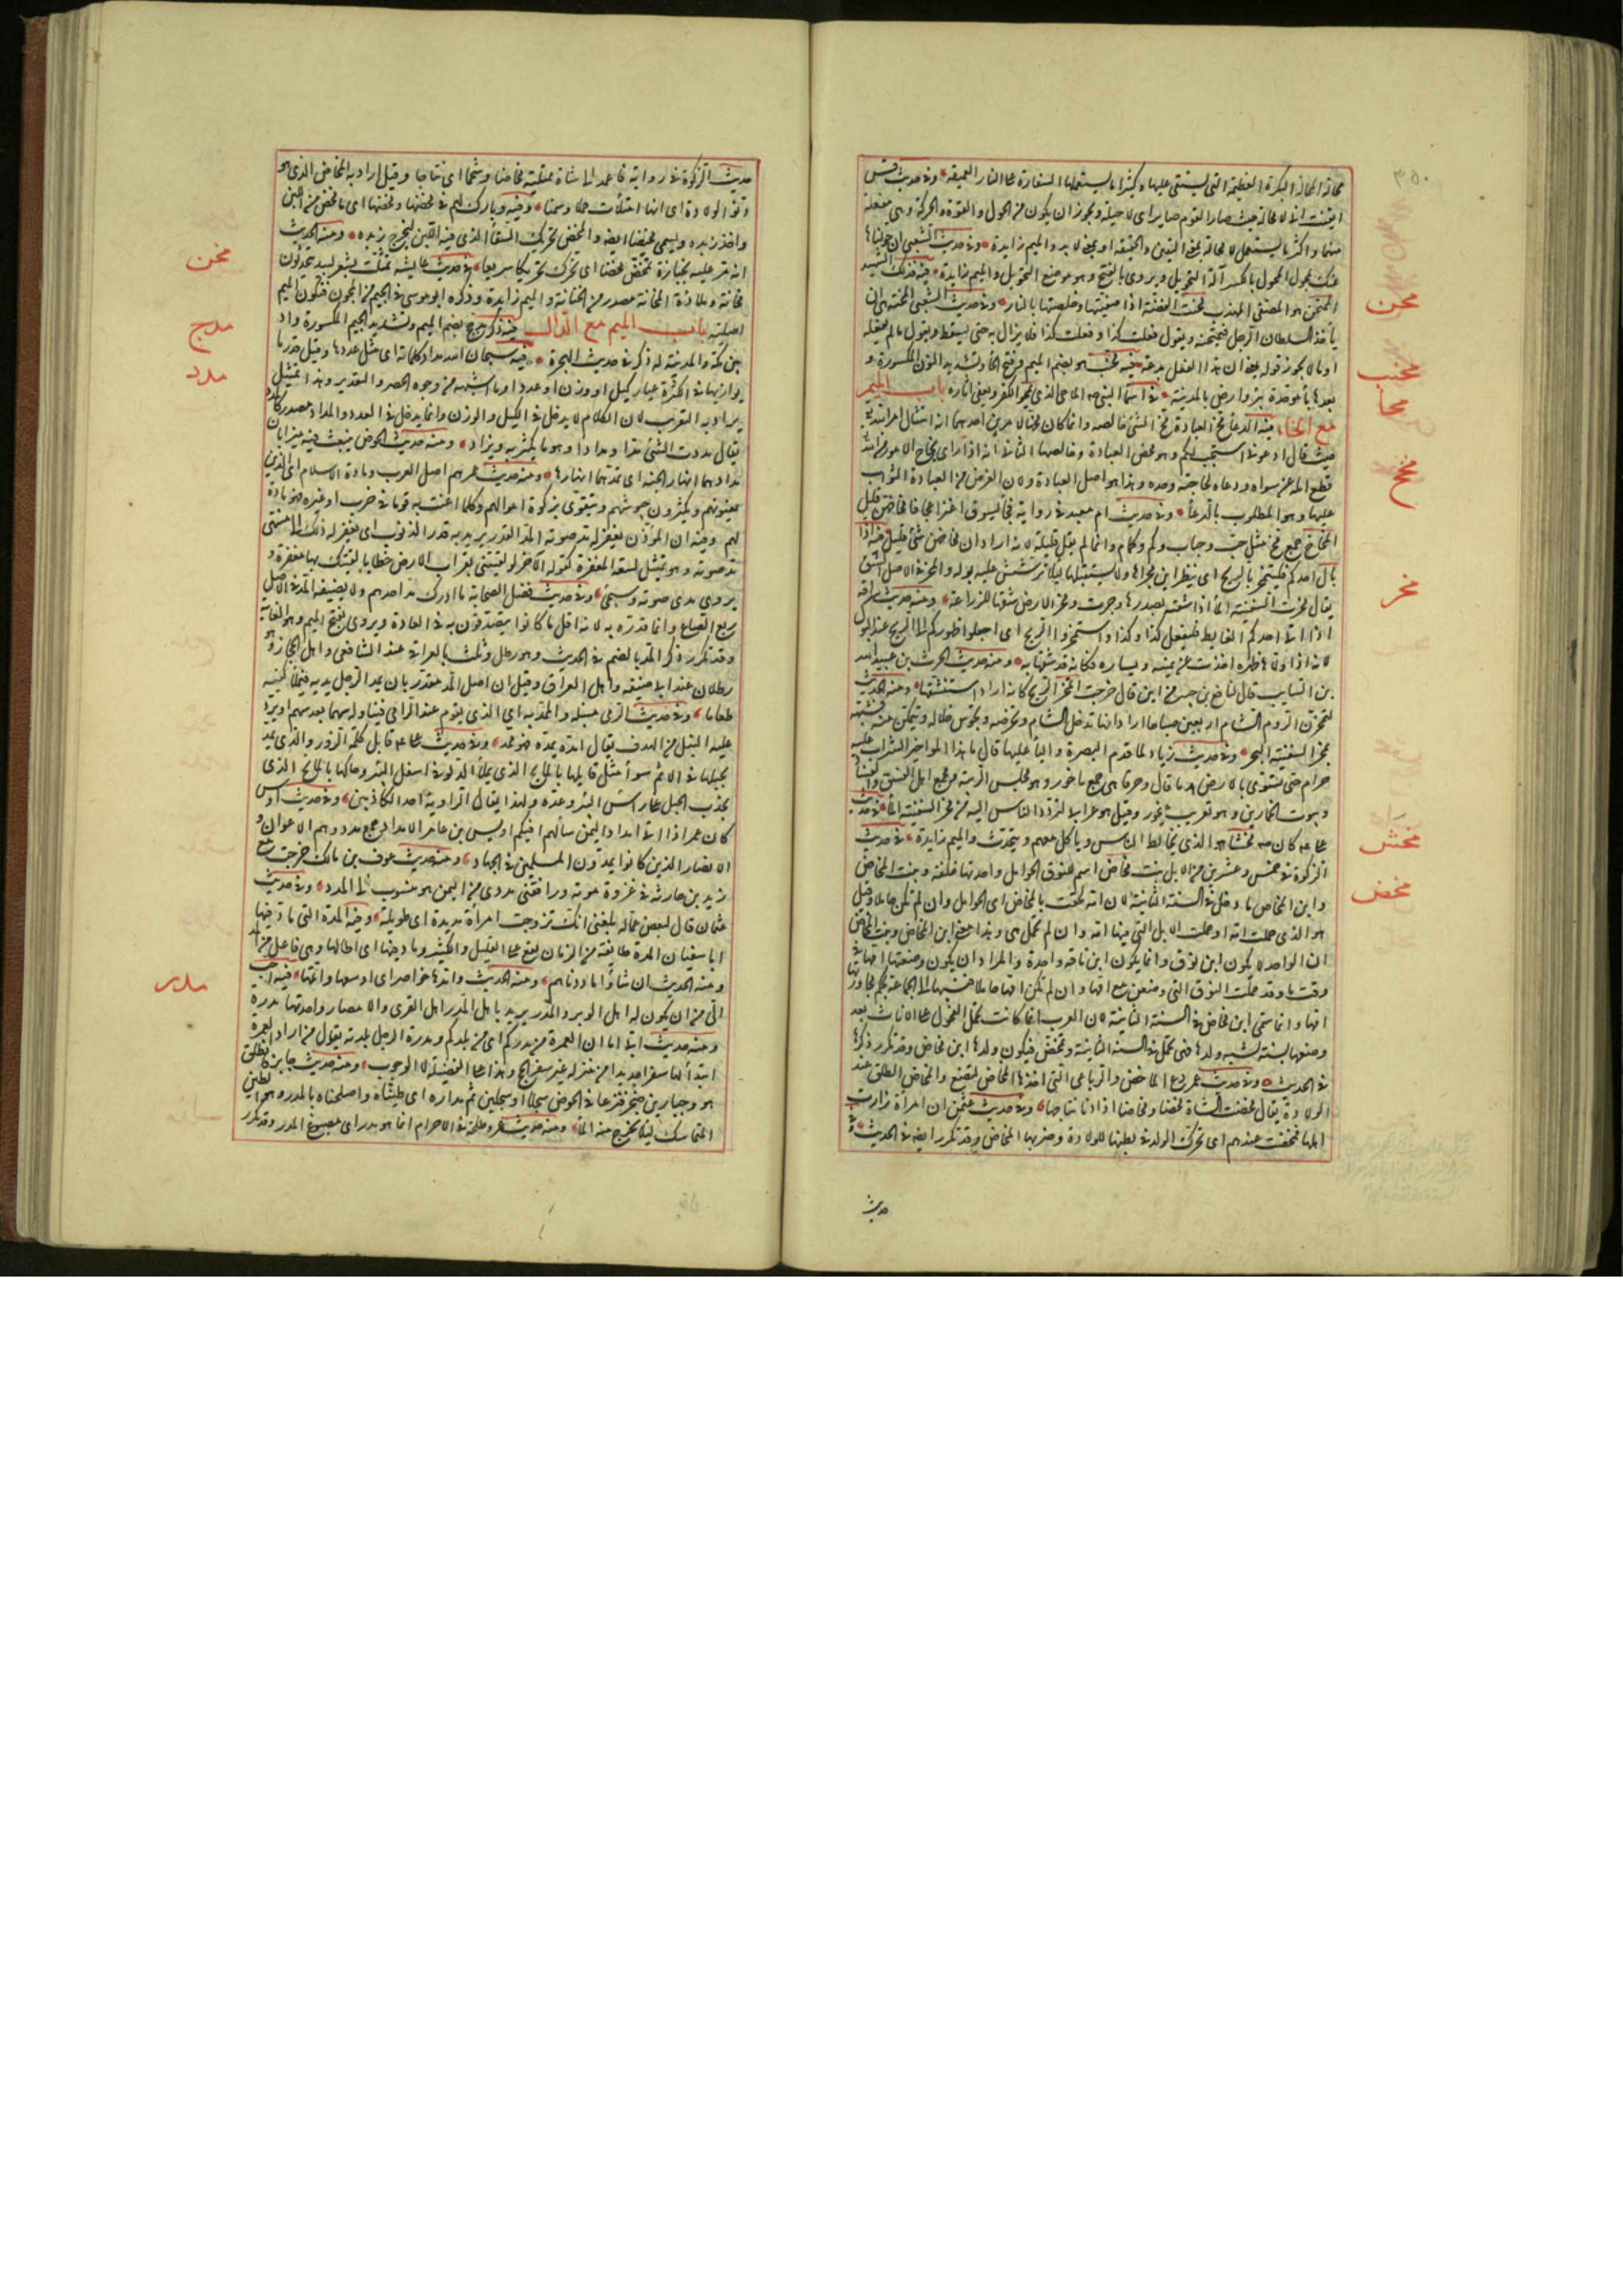 محالة المحالة البكرة العظيمة التى يستقى عليها وكثيرا ما يستعملها السفارة على البئار العميقة وفى حديث قس
ايقنت انى لا محالة حيث صار القوم صاير اى لا حيلة ويجوز ان يكون من الحول والقوة والحركة وهى مفعلة
منهما واكثر ما يستعمل لا محالة بمعنى اليقين والحقيقة او بمعنى لا بد والميم زايدة وفى حديث الشعبى ان حولناها
عنك بمحول المحول بالكسر آلة التحويل ويروى بالفتح وهو موضع التحويل والميم زايدة فيه فذلك الشهيد
الممتحن هو المصفى المهذب محنت الفضة اذا صفيتها وخلصتها بالنار وفى حديث الشعبى المحنة هى ان
يأخذ السلطان الرجل فيمتحنه ويقول فعلت كذا وفعلت كذا فلا يزال به حتى يسقط ويقول ما لم يفعله
او ما لا يجوز قوله يعنى ان هذا الفعل بدعة فيه محنب هو بضم الميم وفتح الحاء وتشديد النون المكسورة و
بعدها باء موحدة بئر وارض بالمدينة فى اسماء النبى صم الماحى الذى يمحو الكفر ويعفى اثاره باب الميم
مع الخاء فيه الدعاء مخ العبادة مخ الشئ خالصه وانما كان مخها لامرين احدهما انه امتثال امر الله تع
حيث قال ادعونى استجب لكم وهو محض العبادة وخالصها الثانى انه اذا رأى نجاح الامور من الله
قطع امله عن سواه ودعاه لحاجته وحده وهذا هو اصل العبادة ولان الغرض من العبادة الثواب
عليها وهو المطلوب بالدعاء وفى حديث ام معبد فى رواية فجاء يسوق اعنزا عجافا مخاخهن قليل
المخاخ جمع مخ مثل حب وحباب وكم وكمام وانما لم يقل قليلة لانه اراد ان مخاخهن شئ قليل فيه اذا
بال احدكم فليتمخر الريح اى ينظر اين مجراها ولا يستقبلها ليلا ترشش عليه بوله والمخر فى الاصل الشق
يقال مخرت السفينة الماء اذا شقته بصدرها وجرت ومخر الارض شقها للزراعة ومنه حديث سراقة
اذا اتى احدكم الغايط فليفعل كذا وكذا واستمخروا الريح اى اجعلوا ظهوركم الى الريح عند البول
لانه اذا ولاها ظهره اخذت عن يمينه ويساره فكانه قد شقها به ومنه حديث الحرث بن عبيد الله
بن السايب قال لنافع بن جبير من اين قال خرجت اتمخر الريح كانه اراد استنشقها ومنه الحديث
لتمخرن الروم الشام اربعين صباحا اراد انها تدخل الشام وتخوضه وتجوس خلاله وتتمكن منه فشبهه
بمخر السفينة البحر وفى حديث زياد لما قدم البصرة واليا عليها قال ما هذا المواخير الشراب عليه
حرام حتى تسوى بالارض هدما وحرقا هى جمع ماخور وهو مجلس الريبة ومجمع اهل الفسق والفساد
وبيوت الخمارين وهو تعريب ميخور وقيل هو عربى لتردد الناس اليه من مخر السفينة الماء فى حديث
على كان صم مخشا هو الذى يخالط الناس وياكل معهم ويتحدث والميم زايدة فى حديث
الزكوة فى خمس وعشرين من الابل بنت مخاض المخاض اسم للنوق الحوامل واحدتها خلفة وبنت المخاض
وابن المخاض ما دخل فى السنة الثانية لان امه لحقت بالمخاض اى الحوامل وان لم تكن حاملا وقيل
هو الذى حملت امه او حملت الابل التى فيها امه وان لم تحمل هى وهذا معنى ابن المخاض وبنت المخاض
لان الواحد لا يكون ابن نوق وانما يكون ابن ناقة واحدة والمراد ان يكون وضعتها امها فى
وقت ما وقد حملت النوق التى وضعن مع امها وان لم تكن امها حاملا فنسبها الى الجماعة بحكم مجاورتها
امها وانما سمى ابن مخاض فى السنة الثانية لان العرب انما كانت تحمل الفحول على الاناث بعد
وضعها بسنة ليشتد ولدها فهى تحمل فى السنة الثانية وتمخض فيكون ولدها ابن مخاض وقد تكرر ذكرها
فى الحديث وفى حديث عمر دع الماخض والربى هى التى اخذها المخاض لتضع والمخاض الطلق عند
الولادة يقال مخضت الشاة مخضا ومخاضا اذا دنا نتاجها وفى حديث عثمن ان امرأة زارت
اهلها فمخضت عندهم اى تحرك الولد فى بطنها للولادة وضربها المخاض وقد تكرر ايضا فى الحديث
حديث
محن
مخنب
محا
مخخ
مخر
مخش
مخض
٣٥٠
حديث الزكوة فى رواية فاعمد الى شاة ممتلئة مخاضا وشحما اى نتاجا وقيل اراد به المخاض الذى هو
دنو الولادة اى انها امتلأت حملا وسمنا وفيه وبارك لهم فى محضها ومخضها اى ما مخض من اللبن
واخذ زبده ويسمى مخيضا ايضا والمخض تحريك السقاء الذى فيه اللبن ليخرج زبده ومنه الحديث
انه مر عليه بجنازة تمخض مخضا اى تحرك تحريكا سريعا فى حديث عايشة تمثلت بشعر لبيد يتحدثون
مخانة وملاذة المخانة مصدر من الخيانة والميم زايدة وذكره ابو موسى فى الجيم من المجون فتكون الميم
اصلية باب الميم مع الدال فيه ذكر مدجج بضم الميم وتشديد الجيم المكسورة واد
بين مكة والمدينة له ذكر فى حديث الهجرة فيه سبحان الله مداد كلماته اى مثل عددها وقيل قدر ما
يوازيها فى الكثرة عيار كيل او وزن او عدد او ما اشبهه من وجوه الحصر والتقدير وهذا تمثيل
يراد به التقريب لان الكلام لا يدخل فى الكيل والوزن وانما يدخل فى العدد والمداد مصدر كالمدد
يقال مددت الشئ مدا ومدادا وهو ما يكثر به ويزاد ومنه حديث الحوض ينبعث فيه ميزابان
مدادهما انهار الجنة اى تمدهما انهارها ومنه حديث عمر هم اصل العرب ومادة الاسلام اى الذين
يعينونهم ويكثرون جيوشهم ويتقوى بزكوة اموالهم وكلما اعنت به قوما فى حرب او غيره فهو مادة
لهم وفيه ان المؤذن يغفر له مد صوته المد القدر يريد به قدر الذنوب اى يغفر له ذلك الى منتهى
مد صوته وهو تمثيل لسعة المغفرة كقوله الآخر لو لقيتنى بقراب الارض خطايا لقيتك بها مغفرة و
يروى مدى صوته وسيجئ وفى حديث فضل الصحابة ما ادرك مد احدهم ولا نصيفه المد فى الاصل
ربع الصاع وانما قدره به لانه اقل ما كانوا يتصدقون به فى العادة ويروى بفتح الميم وهو الغاية
وقد تكرر ذكر المد بالضم فى الحديث وهو رطل وثلث بالعراقى عند الشافعى واهل الحجاز وهو
رطلان عند ابى حنيفة واهل العراق وقيل ان اصل المد مقدر بان يمد الرجل يديه فيملأ كفيه
طعاما وفى حديث الرمى منبله والممد به اى الذى يقوم عند الرامى فيناوله سهما بعد سهم او يرد
عليه النبل من الهدف يقال امده يمده فهو ممد وفى حديث على قابل كلمة الزور والذى يمد
بحبلها فى الاثم سواء مثل قايلها بالمايح الذى يملأ الدلو فى اسفل البئر وحاكيها بالماتح الذى
يجذب الحبل على رأس البئر ويمده ولهذا يقال الراوية احد الكاذبين وفى حديث اويس
كان عمر اذا اتى امداد اليمن سألهم افيكم اويس بن عامر الامداد جمع مدد وهم الاعوان و
الانصار الذين كانوا يمدون المسلمين فى الجهاد ومنه حديث عوف بن مالك خرجت مع
زيد بن حارثة فى غزوة موتة ورافقنى مددى من اليمن هو منسوب الى المدد وفى حديث
عثمان قال لبعض عماله بلغنى انك تزوجت امرأة مديدة اى طويلة وفيه المدة التى ماد فيها
ابا سفيان المدة طايفة من الزمان تقع على القليل والكثير وماد فيها اى اطالها وهى فاعل من المد
ومنه الحديث ان شاؤا ماددناهم ومنه الحديث وامدها خواصر اى اوسعها واتمها فيه احب
الى من ان يكون لى اهل الوبر والمدر يريد باهل المدر اهل القرى والامصار واحدتها مدرة
ومنه حديث ابى اما ان العمرة من مدركم اى من بلدكم ومدرة الرجل بلدته يقول من اراد العمرة
ابتدأ لها سفرا جديدا من منزله غير سفر الحج وهذا على الفضيلة لا الوجوب ومنه حديث جابر فانطلق
هو وجبار بن صخر فنزعا فى الحوض سجلا او سجلين ثم مداره اى طيناه واصلحاه بالمدر وهو الطين
المتماسك ليلا يخرج منه الماء ومنه حديث عمر وطلحة فى الاحرام انما هو مدر اى مصبوغ بالمدر وقد تكرر
مخن
مدج
مدد
مدر